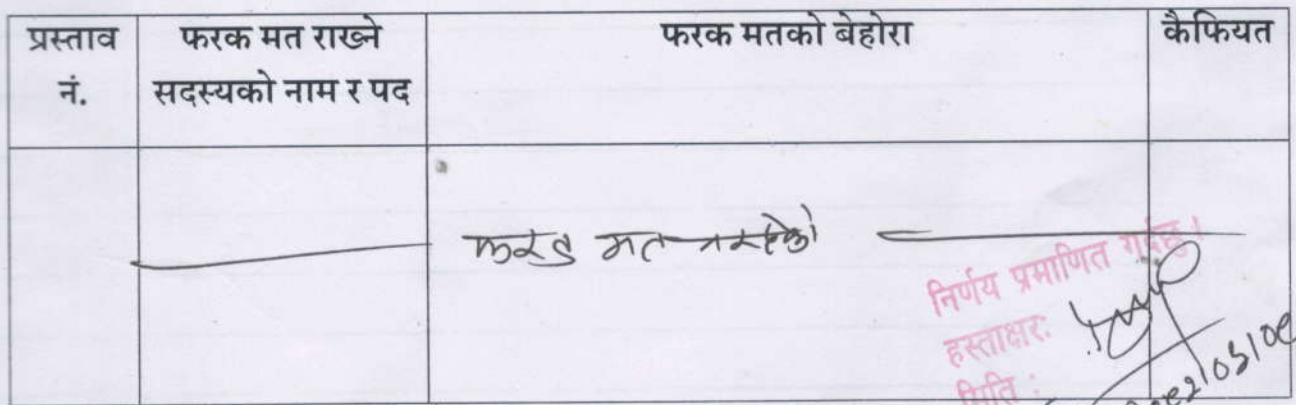 प्रस्ताव नं.
फरक मत राख्ने सदस्यको नाम र पद
फरक मतको बेहोरा
कैफियत
फरक मत नरहेको
निर्णय प्रमाणित गर्दछु।
हस्ताक्षर:
मिति :